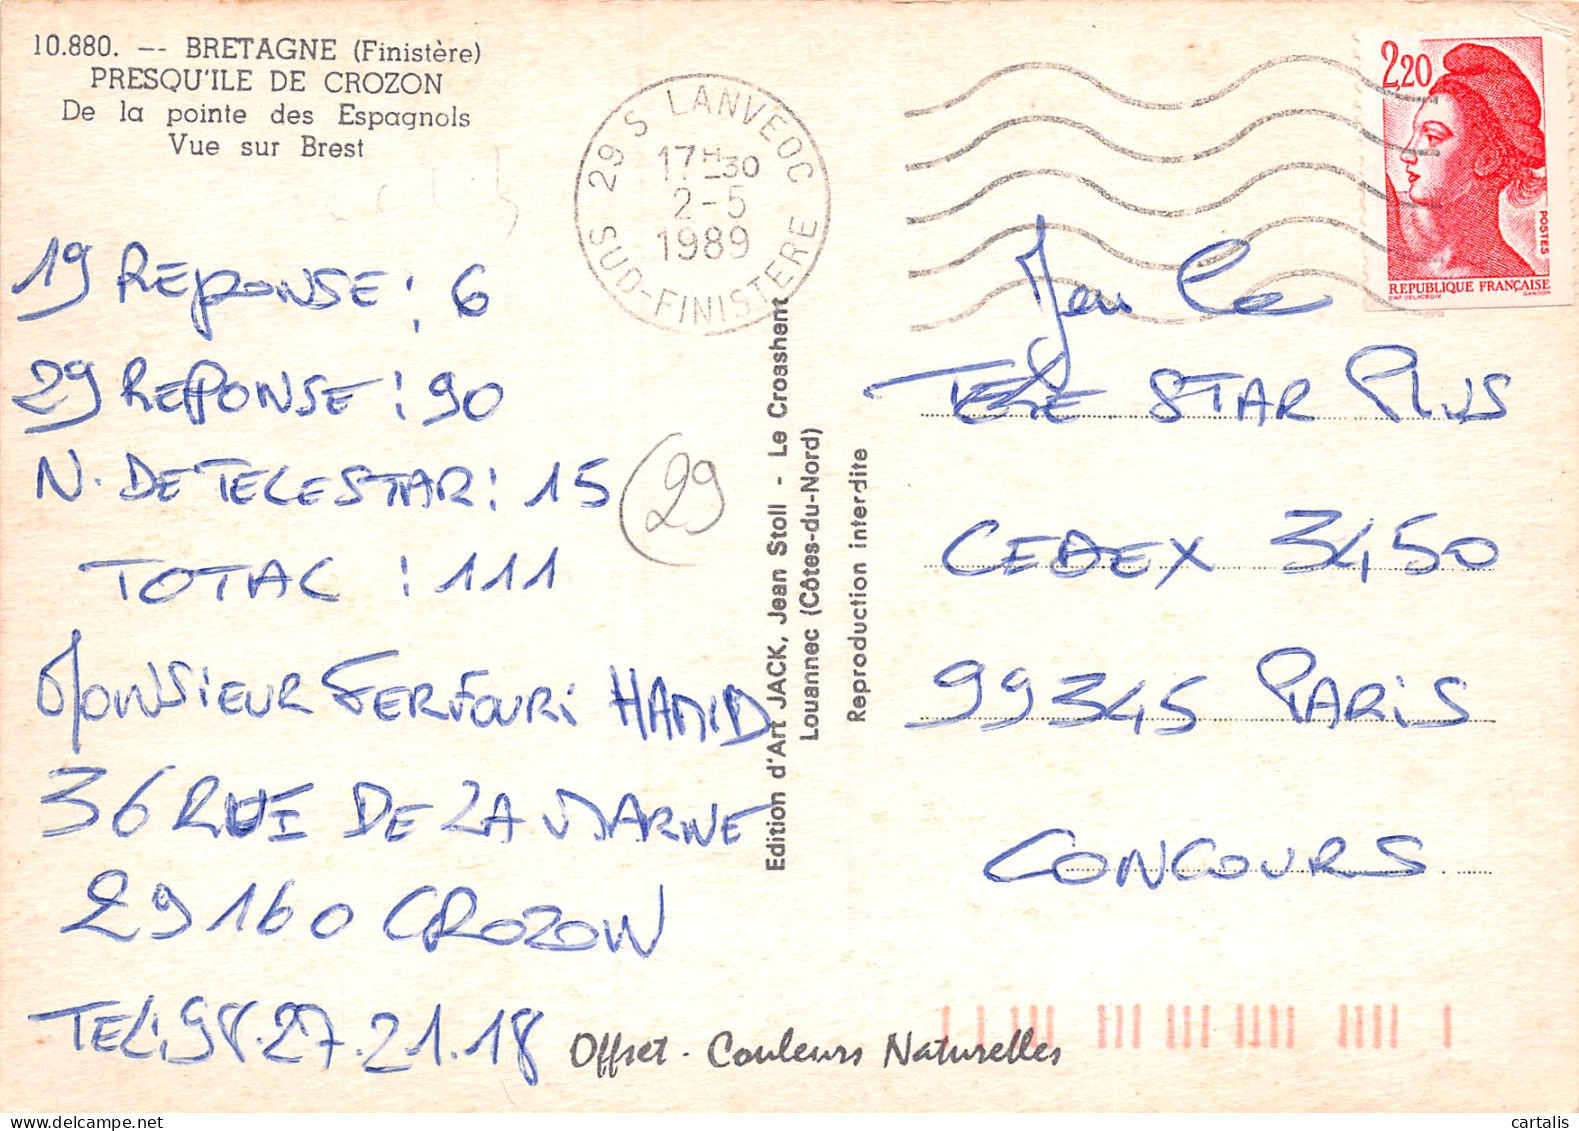 10.880. -- BRETAGNE (Finistère)
PRESQU'ILE DE CROZON
De la pointe des Espagnols
Vue sur Brest
29 S LANVEOC
17H30
2-5
1989
SUD-FINISTERE
2,20
POSTES
REPUBLIQUE FRANÇAISE
D'AP. DELACROIX GANDON
19 REPONSE : 6
29 REPONSE : 90
N. DE TELESTAR : 15
(29
TOTAL : 111
MONSIEUR FERFOURI HAMID
36 RUE DE LA MARNE
29160 CROZON
TEL: 98.27.21.18
Edition d'Art JACK, Jean Stoll - Le Croashent
Louannec (Côtes-du-Nord)
Reproduction interdite
Jeu le
TELE STAR PLUS
CEDEX 3450
99345 PARIS
CONCOURS
Offset - Couleurs Naturelles
cartalis